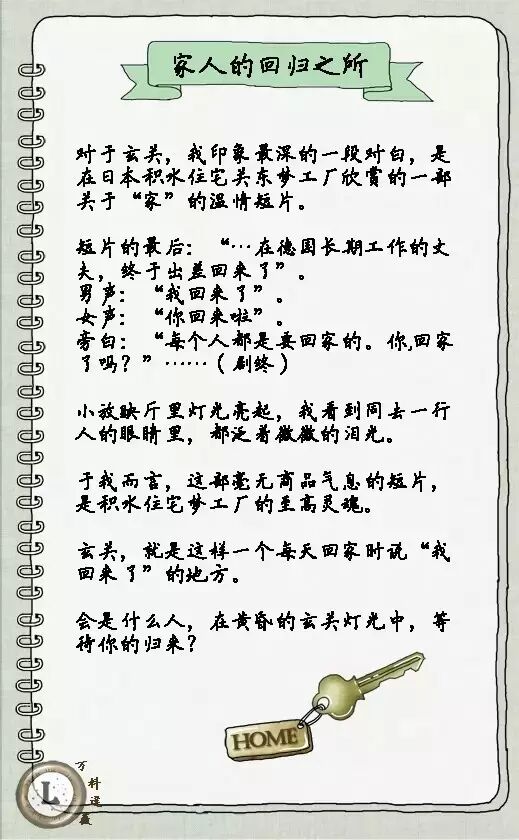 家人的回归之所
对于玄关，我印象最深的一段对白，是
在日本积水住宅关东梦工厂欣赏的一部
关于“家”的温情短片。
短片的最后：“…在德国长期工作的丈
夫，终于出差回来了”。
男声：“我回来了”。
女声：“你回来啦”。
旁白：“每个人都是要回家的。你,回家
了吗？”……（剧终）
小放映厅里灯光亮起，我看到同去一行
人的眼睛里，都泛着微微的泪光。
于我而言，这部毫无商品气息的短片，
是积水住宅梦工厂的至高灵魂。
玄关，就是这样一个每天回家时说“我
回来了”的地方。
会是什么人，在黄昏的玄关灯光中，等
待你的归来？
HOME
L
万科